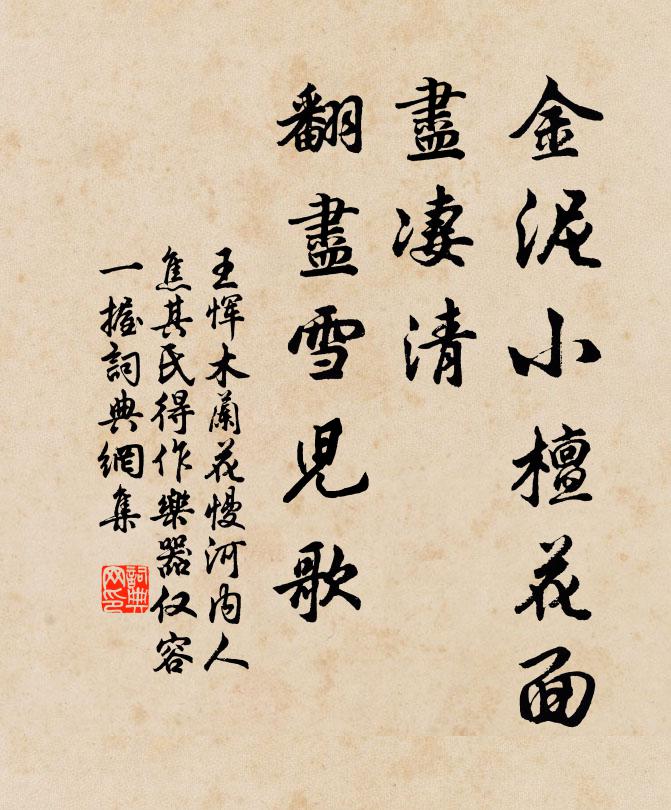 金泥小檀花面
盡凄清
翻盡雪児歌
王惲木蘭花慢河内人
焦其氏得作樂器仅容
一握詞典網集
詞典
网印